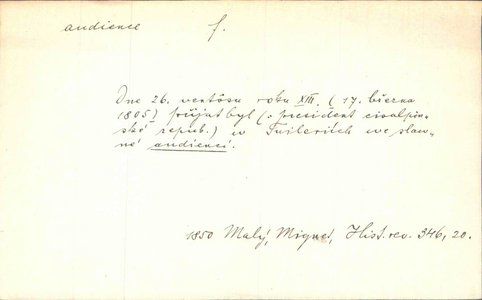 audience f.
Dne 26. ventôsu roku XIII. ( 17. března
1805) přijat byl (president cisalpin-
ské repub.) w Tuileriích we slaw-
né audienci.
1850 Malý, Mignet, Hist. rev. 346, 20.